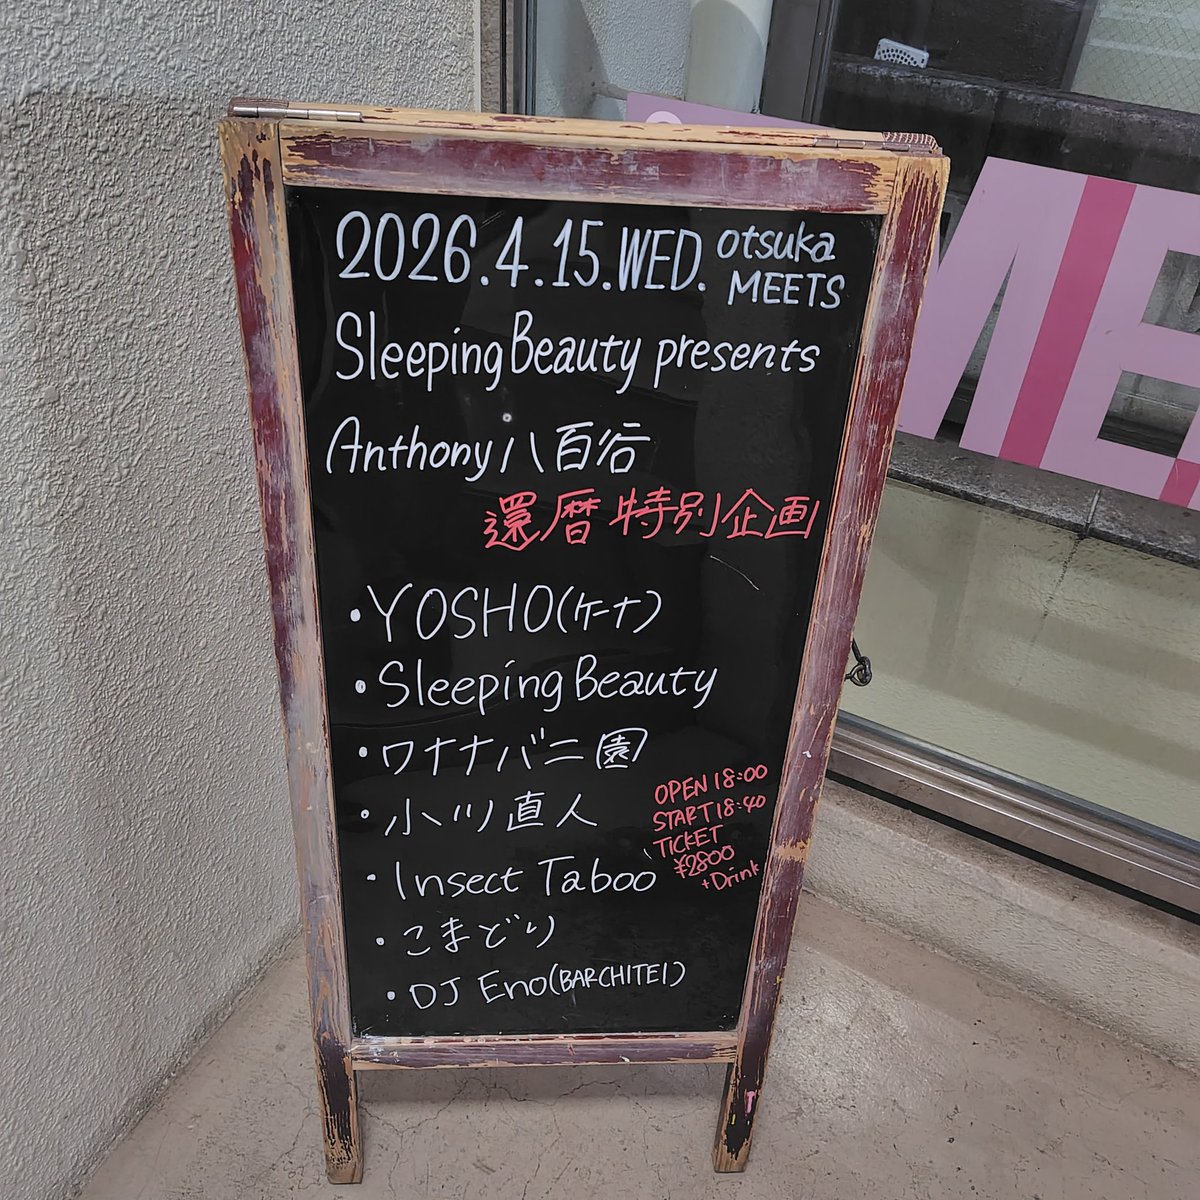 2026.4.15.WED. otsuka MEETS
Sleeping Beauty presents
Anthony 八百谷
還暦 特別企画
・YOSHO(ケーナ)
・Sleeping Beauty
・ワナナバニ園
・小川直人
・Insect Taboo
・こまどり
・DJ Eno(BARCHITEI)
OPEN 18:00
START 18:40
TICKET
¥2800
+Drink
ME